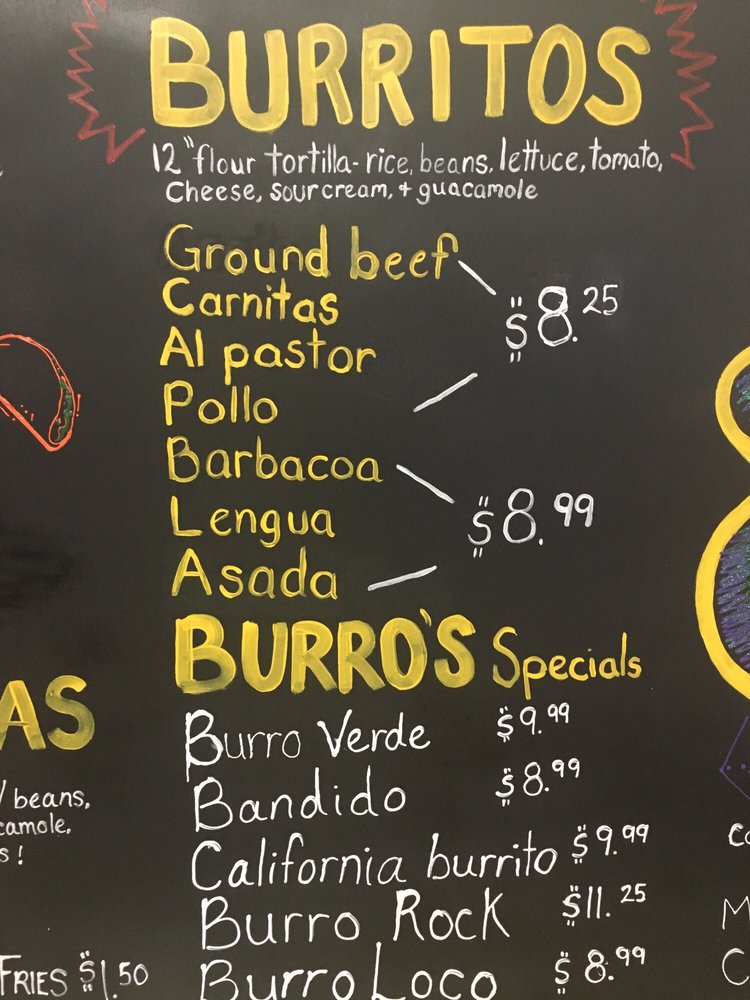 BURRITOS
12" flour tortilla- rice, beans, lettuce, tomato,
Cheese, sour cream, + guacamole
Ground beef
Carnitas
$8.25
Al pastor
Pollo
Barbacoa
Lengua
$8.99
Asada
BURRO'S Specials
Burro Verde $9.99
Bandido $8.99
California burrito $9.99
Burro Rock $11.25
Burro Loco $8.99
AS
/ beans,
camole,
s!
FRIES $1.50